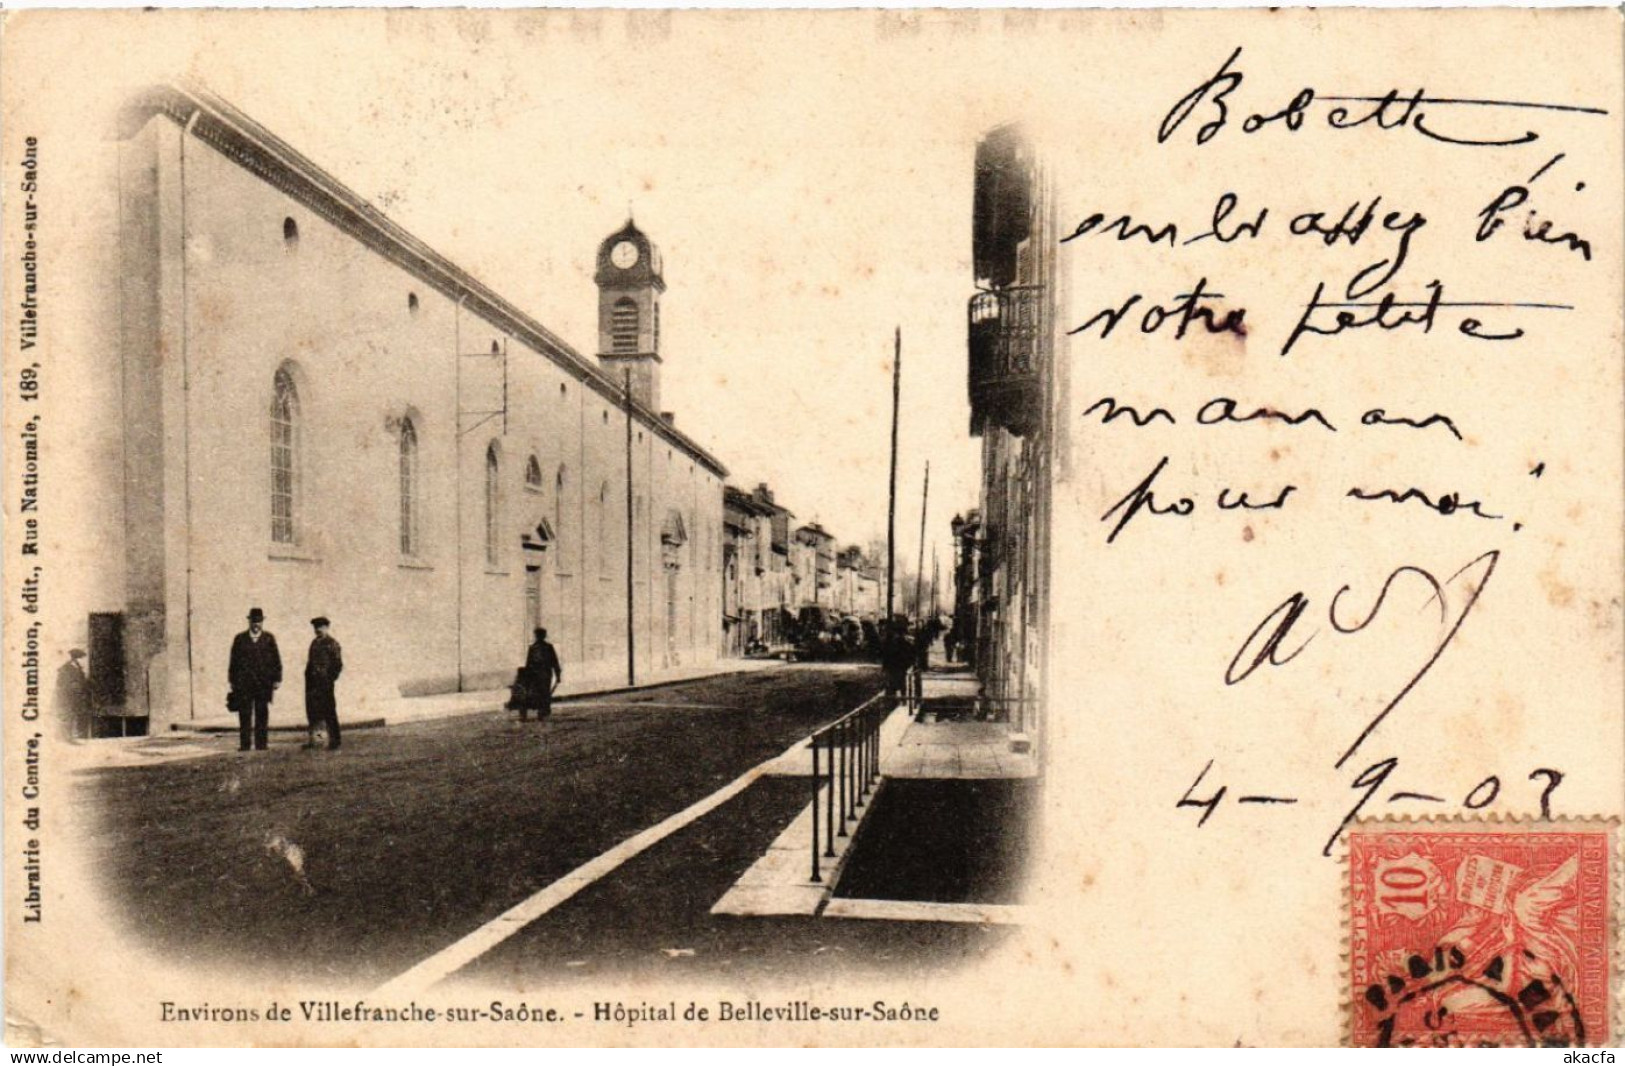 Librairie du Centre, Chambion, édit., Rue Nationale, 189, Villefranche-sur-Saône
Bobette,
embrassez bien
votre petite
maman
pour moi!
4-9-03
10
POSTES
REPUBLIQUE FRANCAISE
DROITS DE L'HOMME
PARIS A
Environs de Villefranche-sur-Saône. - Hôpital de Belleville-sur-Saône
www.delcampe.net
akacfa